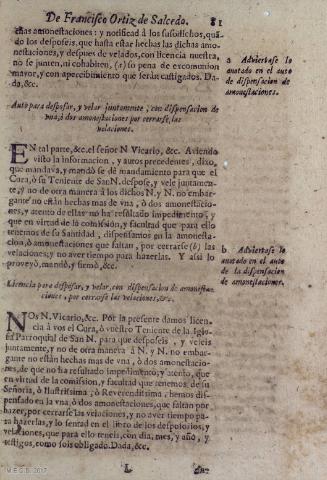 De Francisco Ortiz de Salcedo. 81
chas amonestaciones: y notificad à los susodichos, quã
do los desposeis, que hasta estar hechas las dichas amo
nestaciones, y despues de velados, con licencia nuestra,
no se junten, ni cohabiten, (a) so pena de excomunion
mayor, y con apercibimiento que seràn castigados. Da-
da, &c.
a Adviertase lo
anotado en el auto
de dispensacion de
amonestaciones.
Auto para desposar, y velar juntamente, con dispensacion de
vna, ò dos amonestaciones por cerrarse, las
velaciones.
EN tal parte, &c. el señor N Vicario, &c. Aviendo
visto la informacion, y autos precedentes, dixo,
que mandava, y mandò se dè mandamiento para que el
Cura, ò su Teniente de San N. despose, y vele juntamen-
te, y no de otra manera à los dichos N. y N. no embar-
gante no estàn hechas mas de vna, ò dos amonestacio-
nes, y atento de ellas no ha resultado impedimento, y
que en virtud de la comission, y facultad que para ello
tenemos de su Santidad, dispensamos en la amonesta-
cion, ò amonestaciones que faltan, por cerrarse (b) las
velaciones; y no aver tiempo para hazerlas. Y assi lo
proveyò, mandò, y firmò, &c.
b Adviertase lo
anotado en el auto
de la dispensacion
de amonestaciones.
Licencia para desposar, y velar, con dispensacion de amonesta-
ciones, por cerrarse las velaciones, &c.
NOS N. Vicario, &c. Por la presente damos licen-
cia à vos el Cura, ò vuestro Teniente de la Igle-
sia Parroquial de San N. para que desposeis, y veleis
juntamente, y no de otra manera à N. y N. no embar-
gante no estàn hechas mas de vna, ò dos amonestacio-
nes, de que no ha resultado impedimento; y atento, que
en virtud de la comission, y facultad que tenemos de su
Señoria, ò Ilustrissima, ò Reverendissima, hemos dis-
pensado en la vna, ò dos amonestaciones, que faltan por
hazer, por cerrarse las velaciones, y no aver tiempo pa-
ra hazerlas, y lo sentad en el libro de los desposorios, y
velaciones, que para ello teneis, con dia, mes, y año, y
testigos, como sois obligado. Dada, &c.
L
M.E.C.D. 2017